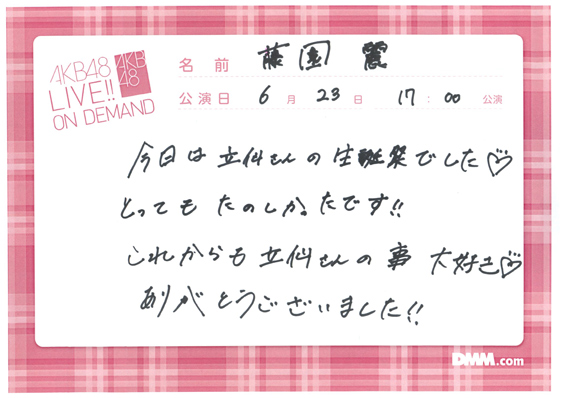 AKB48
LIVE!!
ON DEMAND
AKB
48
名 前 藤園 麗
公演日 6 月 23 日 17 : 00 公演
今日は立仙さんの生誕祭でした♡
とってもたのしかったです!!
これからも立仙さんの事 大好き♡
ありがとうございました!!
DMM.com